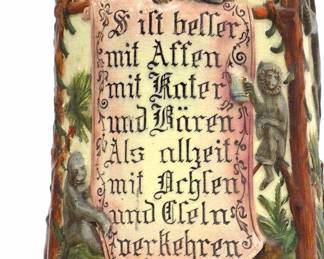 S ist besser
mit Affen
mit Kater
und Bären
Als allzeit
mit Ochsen
und Eseln
verkehren